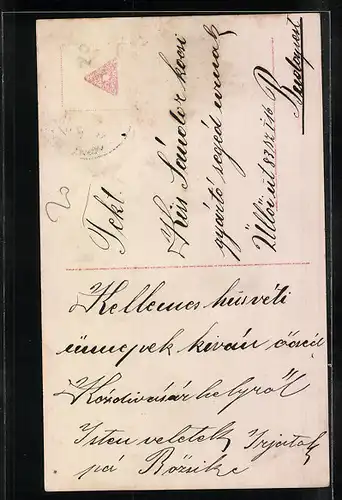 Tekt.
Kiss Sándor kocsi
gyártó segéd urnak
Üllői út
Budapest
Kellemes húsvéti
ünnepek kíván
Kézdivásárhelyről
Isten veletek Irjatok
pá Rózsika
20